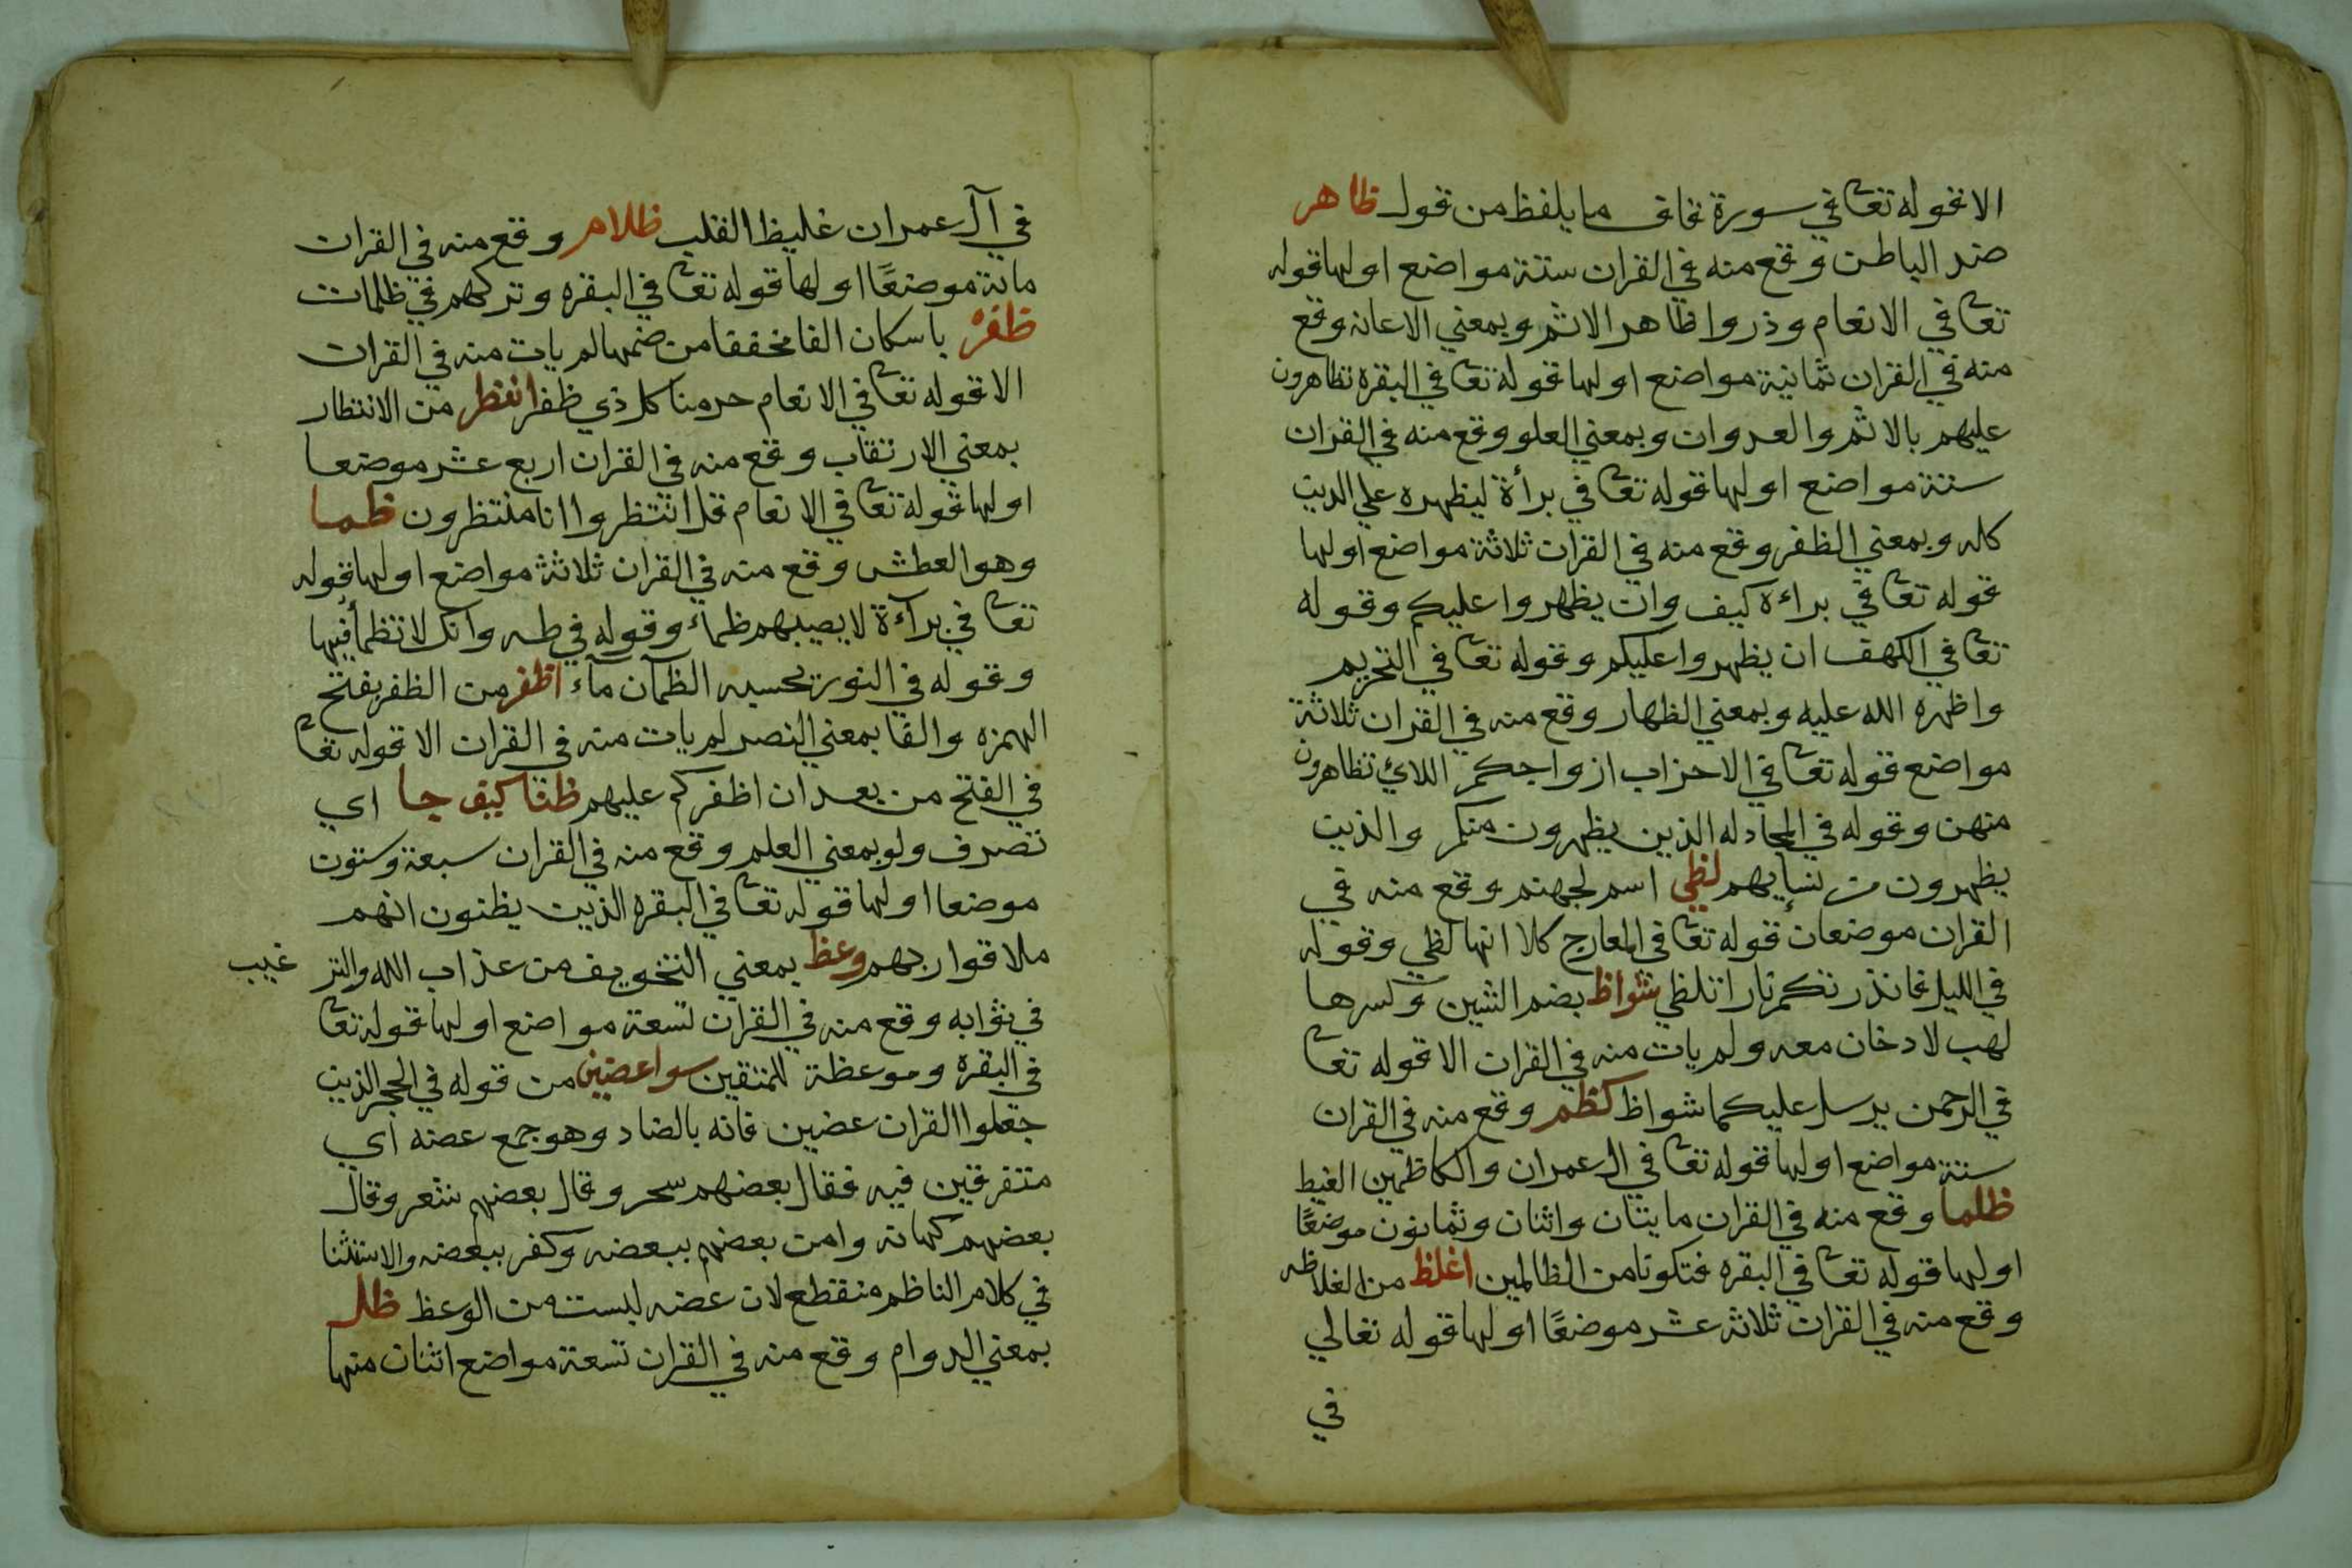 الا قوله تعا في سورة قاف ما يلفظ من قول ظاهر
ضد الباطن وقع منه في القران ستة مواضع اولها قوله
تعا في الانعام وذروا ظاهر الاثم وبمعني الاعانه وقع
منه في القران ثمانية مواضع اولها قوله تعا في البقره تظاهرون
عليهم بالاثم والعدوان وبمعني العلو ووقع منه في القران
ستة مواضع اولها قوله تعا في برأة ليظهره علي الدين
كله وبمعني الظفر وقع منه في القران ثلاثة مواضع اولها
قوله تعا في براءة كيف وان يظهروا عليكم وقوله
تعا في الكهف ان يظهروا عليكم وقوله تعا في التحريم
واظهره الله عليه وبمعني الظهار وقع منه في القران ثلاثة
مواضع قوله تعا في الاحزاب ازواجكم اللائي تظاهرون
منهن وقوله في المجادله الذين يظهرون منكم والذين
يظهرون من نسايهم لظي اسم لجهنم وقع منه في
القران موضعان قوله تعا في المعارج كلا انها لظي وقوله
في الليل فانذرتكم نارا تلظي شواظ بضم الشين وكسرها
لهب لا دخان معه ولم يات منه في القران الا قوله تعا
في الرحمن يرسل عليكما شواظ كظم وقع منه في القران
ستة مواضع اولها قوله تعا في ال عمران والكاظمين الغيظ
ظلما وقع منه في القران مايتان واثنان وثمانون موضعًا
اولها قوله تعا في البقره فتكونا من الظالمين اغلظ من الغلاظه
وقع منه في القران ثلاثه عشر موضعًا اولها قوله تعالي
في
في آل عمران غليظ القلب ظلام وقع منه في القران
ماية موضعًا اولها قوله تعا في البقره وتركهم في ظلمات
ظفر باسكان الفا مخففا من ضمها لم يات منه في القران
الا قوله تعا في الانعام حرمنا كل ذي ظفر انتظر من الانتظار
بمعني الارتقاب وقع منه في القران اربع عشر موضعا
اولها قوله تعا في الانعام قل انتظروا انا منتظرون ظما
وهو العطش وقع منه في القران ثلاثة مواضع اولها قوله
تعا في برآءة لا يصيبهم ظماء وقوله في طه وانك لا تظمأ فيها
وقوله في النور يحسبه الظمآن مآء اظفر من الظفر بفتح
الهمزه والفا بمعني النصر لم يات منه في القران الا قوله تعا
في الفتح من بعد ان اظفركم عليهم ظنا كيف جا اي
تصرف ولو بمعني العلم وقع منه في القران سبعة وستون
موضعا اولها قوله تعا في البقره الذين يظنون انهم
ملاقوا ربهم وعظ بمعني التخويف من عذاب الله والتر غيب
في ثوابه وقع منه في القران تسعة مواضع اولها قوله تعا
في البقره وموعظة للمتقين سوا عضين من قوله في الحجر الذين
جعلوا القران عضين فانه بالضاد وهو جمع عضه اي
متفرقين فيه فقال بعضهم سحر وقال بعضهم شعر وقال
بعضهم كهانه وامن بعضهم ببعضه وكفر ببعضه والاستثنا
في كلام الناظم منقطع لان عضه ليست من الوعظ ظل
بمعني الدوام وقع منه في القران تسعة مواضع اثنان منها